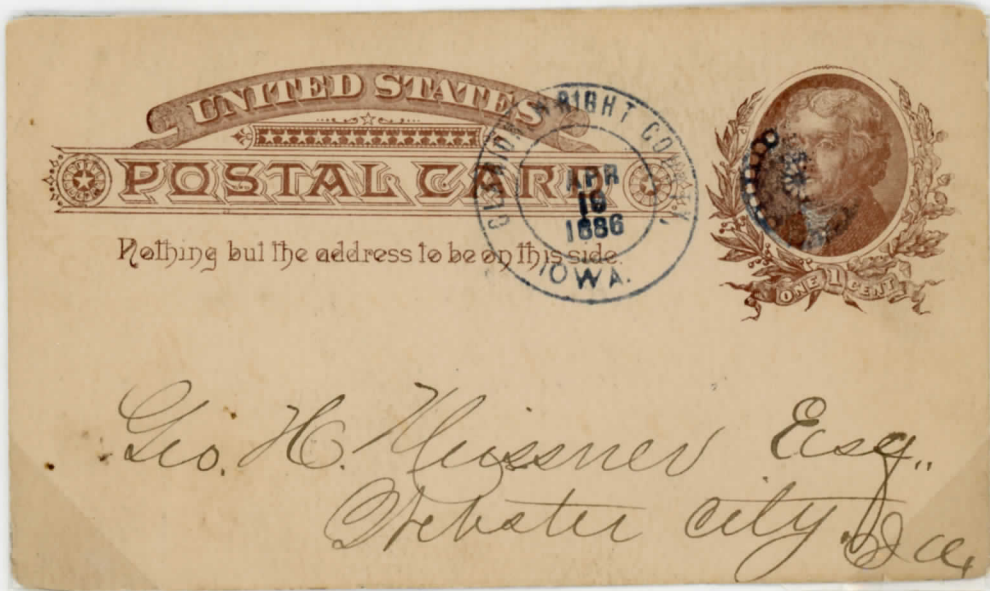 UNITED STATES
POSTAL CARD
Nothing but the address to be on this side.
CLARION, WRIGHT COUNTY,
APR
19
1886
IOWA.
ONE 1 CENT
Geo. H. Meissner Esq.,
Webster City, Ia.